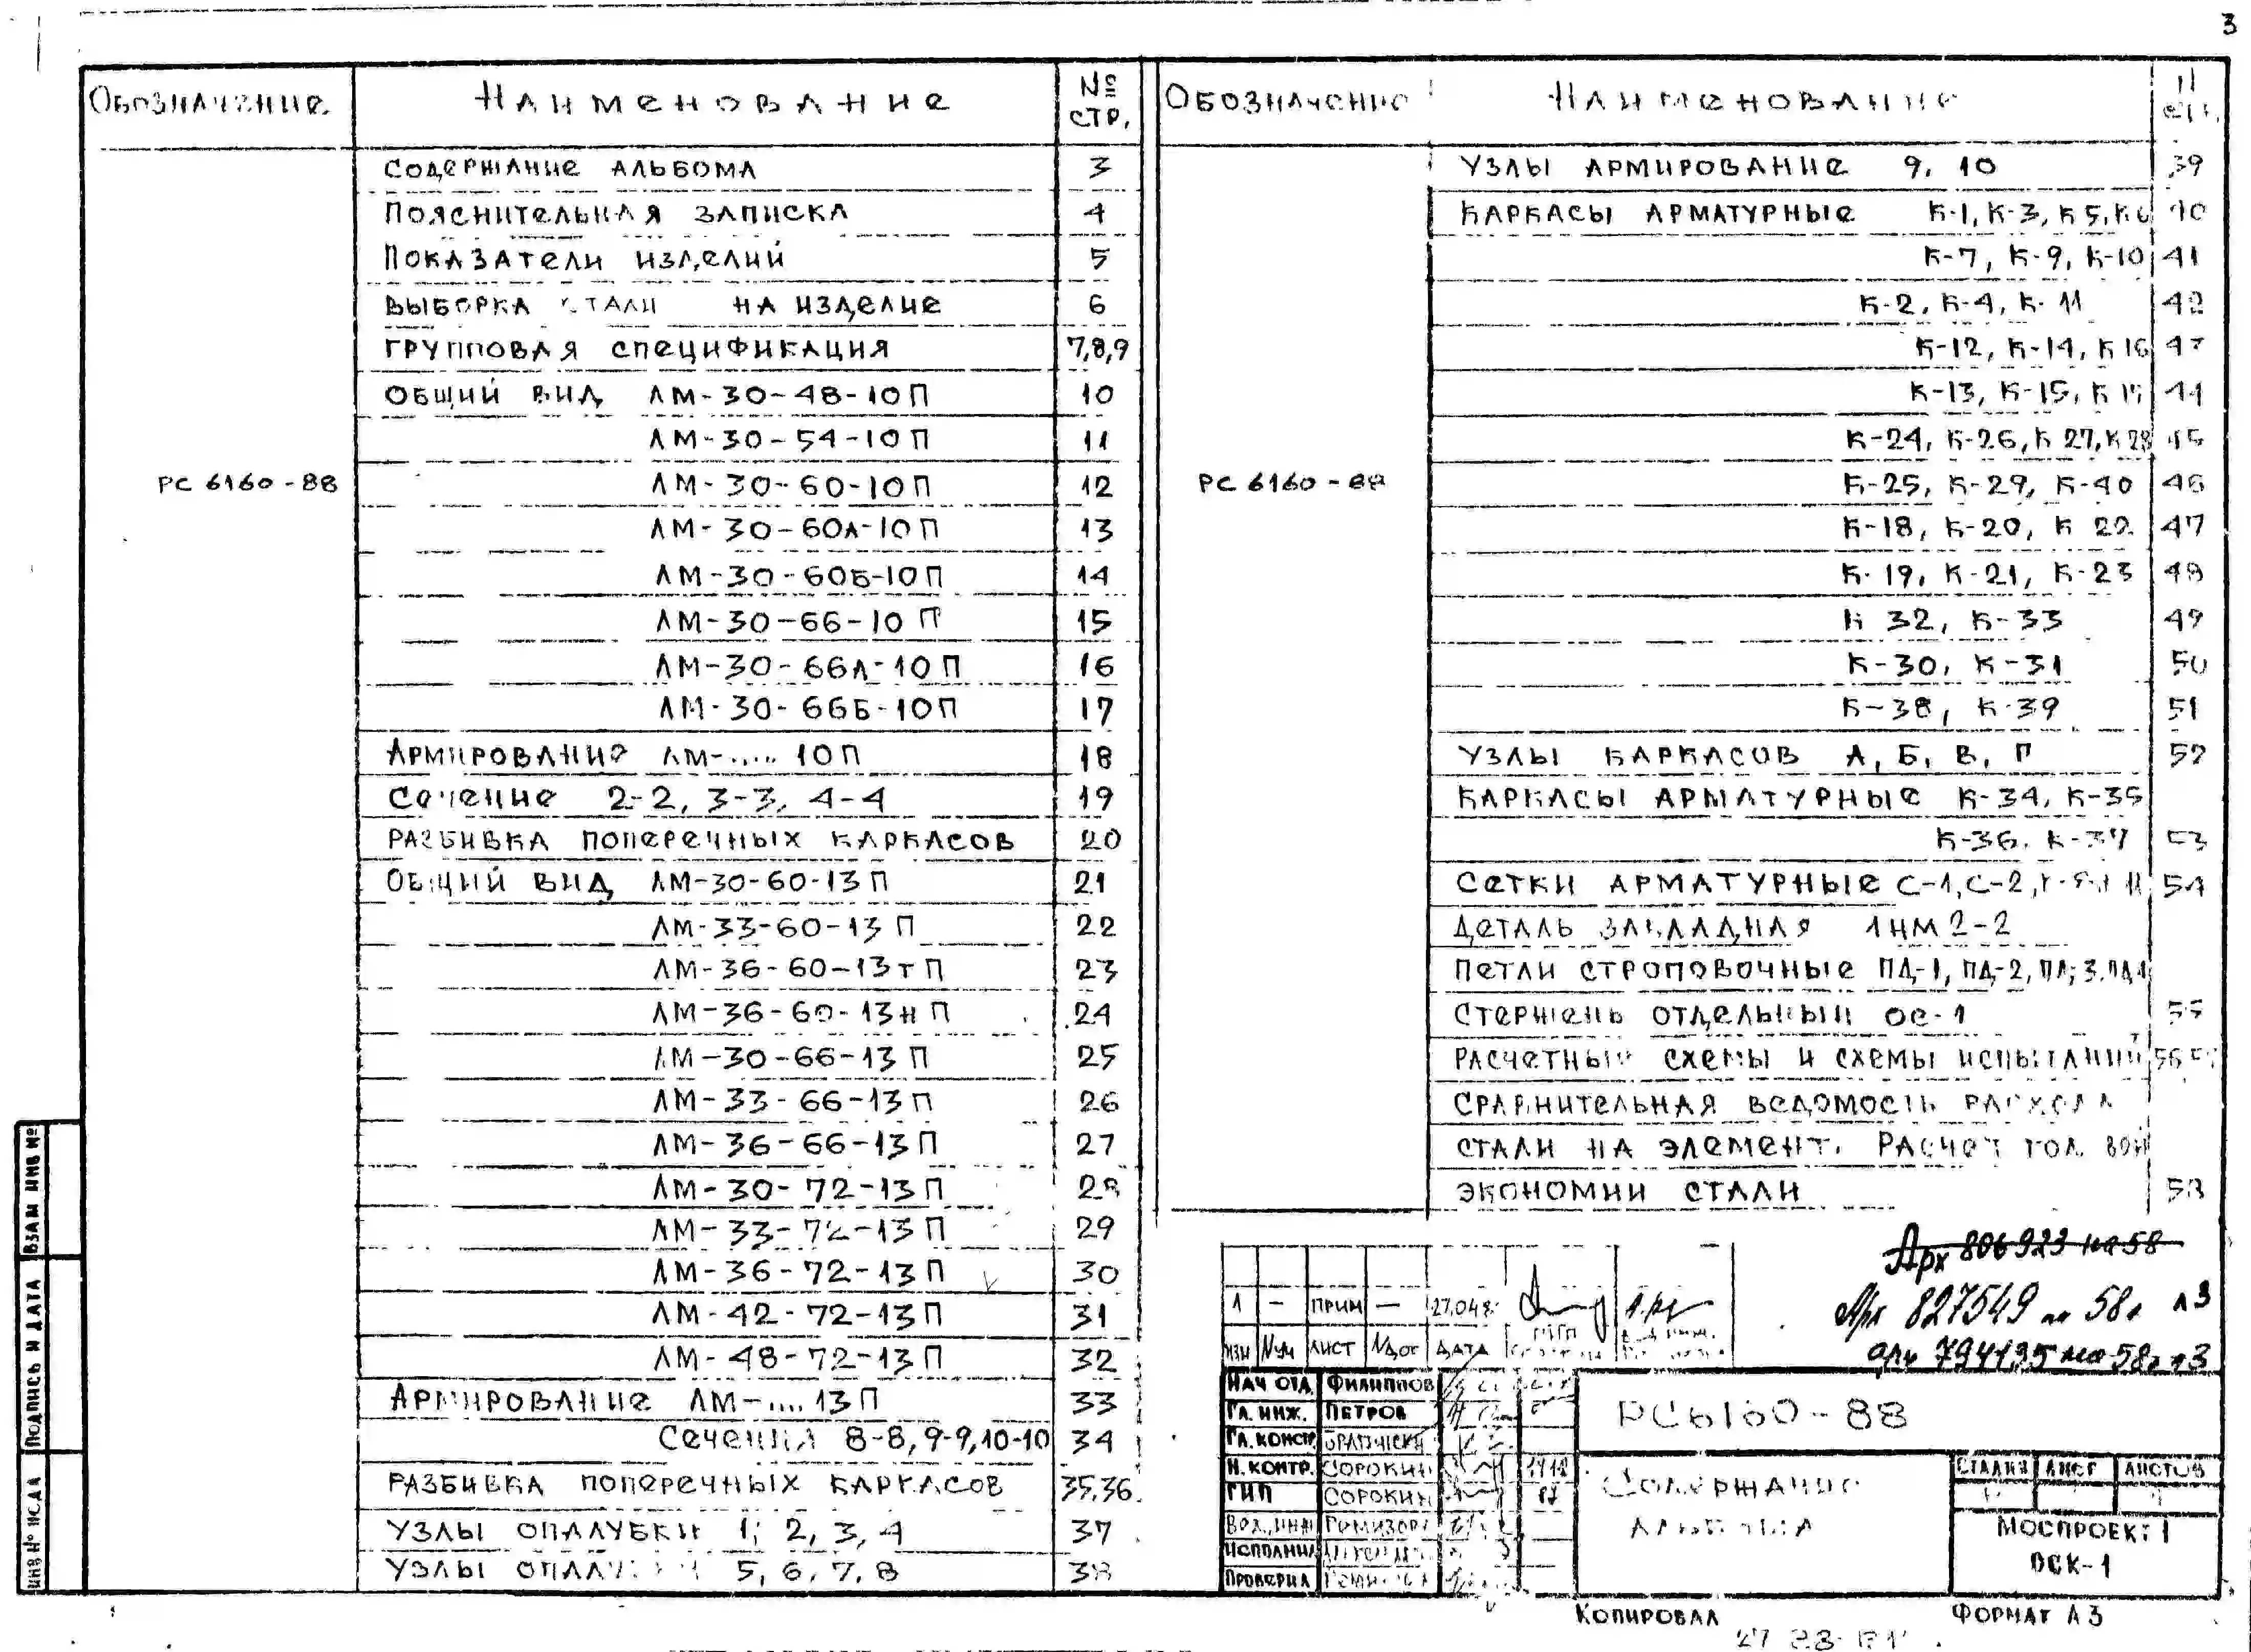 3
Обозначение Наименование № стр.
Содержание альбома 3
Пояснительная записка 4
Показатели изделий 5
Выборка стали на изделие 6
Групповая спецификация 7,8,9
Общий вид ЛМ-30-48-10П 10
ЛМ-30-54-10П 11
РС 6160-88 ЛМ-30-60-10П 12
ЛМ-30-60А-10П 13
ЛМ-30-60Б-10П 14
ЛМ-30-66-10П 15
ЛМ-30-66А-10П 16
ЛМ-30-66Б-10П 17
Армирование ЛМ-.....10П 18
Сечение 2-2, 3-3, 4-4 19
Разбивка поперечных каркасов 20
Общий вид ЛМ-30-60-13П 21
ЛМ-33-60-13П 22
ЛМ-36-60-13тП 23
ЛМ-36-60-13нП 24
ЛМ-30-66-13П 25
ЛМ-33-66-13П 26
ЛМ-36-66-13П 27
ЛМ-30-72-13П 28
ЛМ-33-72-13П 29
ЛМ-36-72-13П 30
ЛМ-42-72-13П 31
ЛМ-48-72-13П 32
Армирование ЛМ-....13П 33
Сечения 8-8, 9-9, 10-10 34
Разбивка поперечных каркасов 35,36
Узлы опалубки 1, 2, 3, 4 37
Узлы опалубки 5, 6, 7, 8 38
Обозначение Наименование
Узлы армирование 9, 10 39
Каркасы арматурные К-1, К-3, К5, К6 40
К-7, К-9, К-10 41
К-2, К-4, К-11 42
К-12, К-14, К16 43
К-13, К-15, К 44
К-24, К-26, К27, К28 45
РС 6160-88 К-25, К-29, К-40 46
К-18, К-20, К 22 47
К-19, К-21, К-23 48
К 32, К-33 49
К-30, К-31 50
К-38, К-39 51
Узлы каркасов А, Б, В, Г 52
Каркасы арматурные К-34, К-35
К-36, К-37 53
Сетки арматурные С-1, С-2, 54
Деталь закладная 1НМ2-2
Петли строповочные ПД-1, ПД-2,
Стержень отдельный ОС-1 55
Расчетные схемы и схемы испытаний
Сравнительная ведомость расхода
стали на элемент. Расчет годовой
экономии стали 58
Арх 806923 на 58
Арх 827549 на 58л л3
арх 794135 на 58л л3
1 — прим —
изм Nуч лист Nдок дата
Нач отд. Филиппов
Гл. инж. Петров
Гл. констр.
Н. контр. Сорокин
ГИП Сорокин
Исполнил
Проверил
РС6160-88
Содержание
альбома
Стадия Лист Листов
Моспроект 1
ОСК-1
Взам инв №
Подпись и дата
Инв № подл
Копировал Формат А3